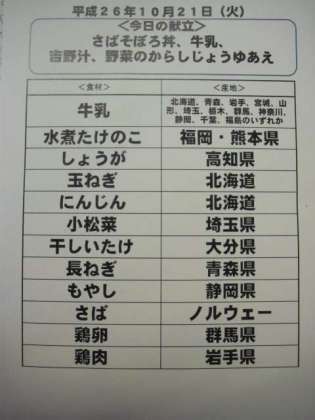 平成26年10月21日（火）
＜今日の献立＞
さばそぼろ丼、牛乳、
吉野汁、野菜のからしじょうゆあえ
＜食材＞ ＜産地＞
牛乳 北海道、青森、岩手、宮城、山
形、埼玉、栃木、群馬、神奈川、
静岡、千葉、福島のいずれか
水煮たけのこ 福岡・熊本県
しょうが 高知県
玉ねぎ 北海道
にんじん 北海道
小松菜 埼玉県
干しいたけ 大分県
長ねぎ 青森県
もやし 静岡県
さば ノルウェー
鶏卵 群馬県
鶏肉 岩手県